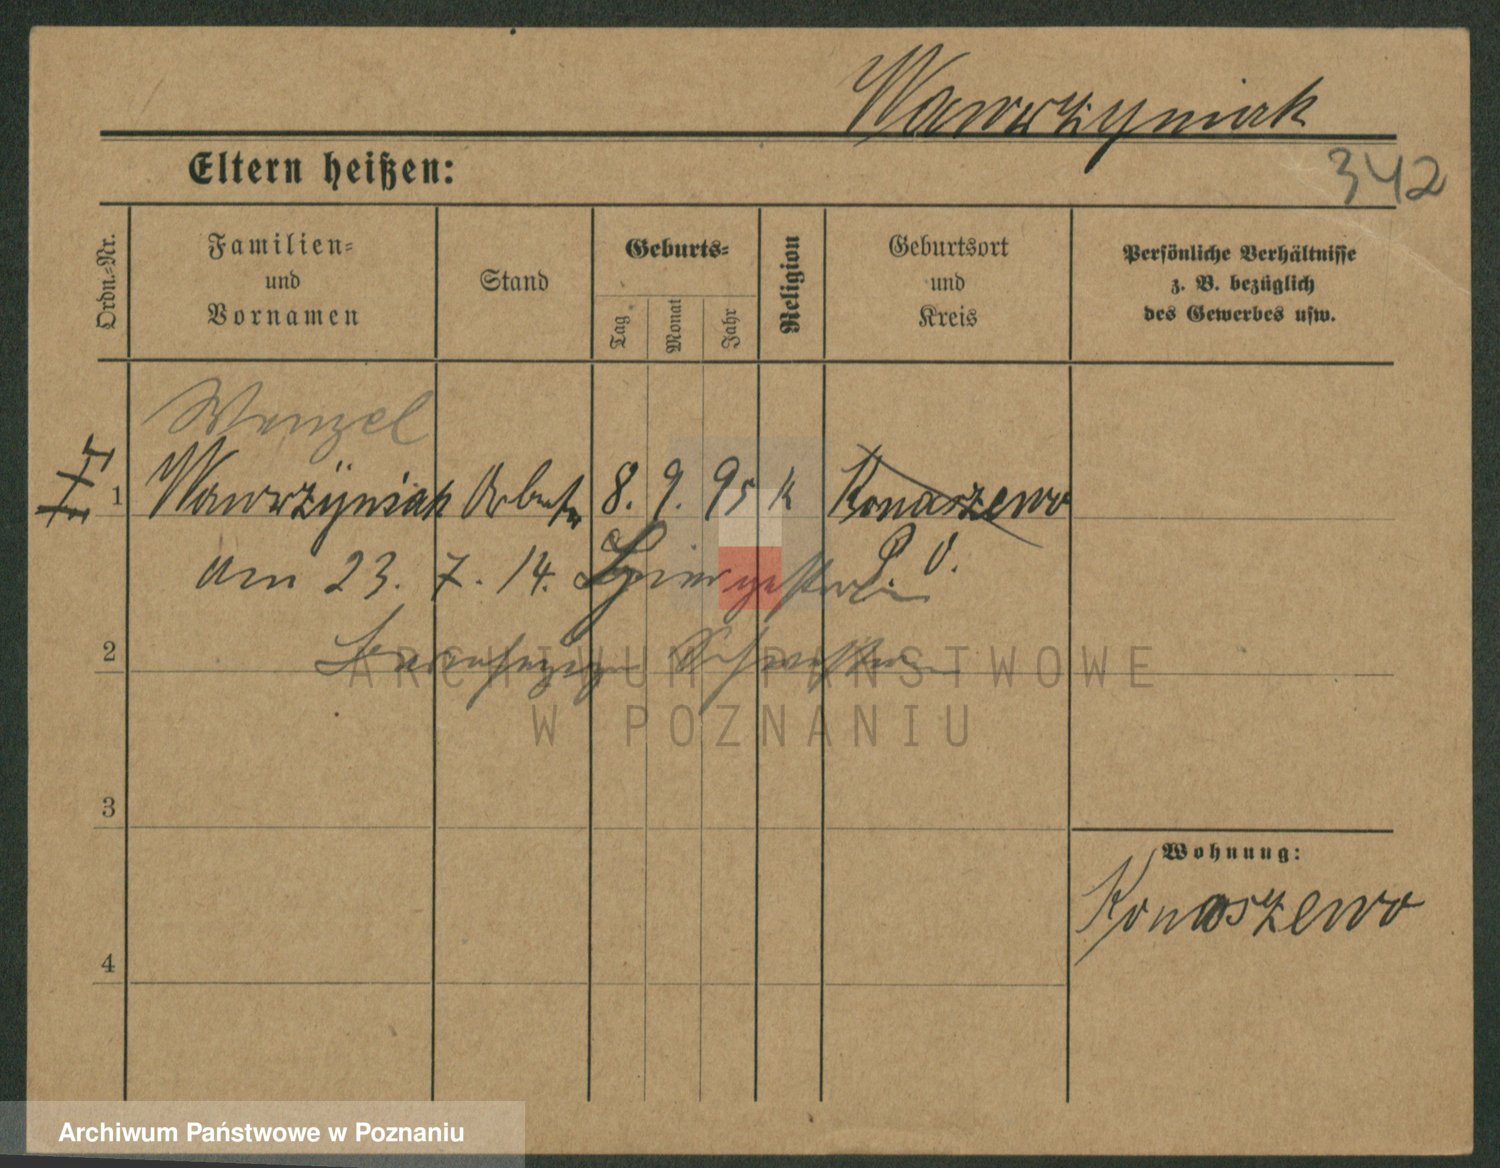 Wawrzyniak
Eltern heißen:
342
Ordn.-Nr.
Familien-
und
Vornamen
Stand
Geburts-
Tag
Monat
Jahr
Religion
Geburtsort
und
Kreis
Persönliche Verhältnisse
z. B. bezüglich
des Gewerbes usw.
Wenzel
1 Wawrzÿniak Arbeiter 8. 9. 95 k Konaszewo
P. O.
am 23. 7. 14. hier gestorben
2 Barmherzige Schwestern
ARCHIWUM PAŃSTWOWE
W POZNANIU
3
Wohnung:
Konaszewo
4
Archiwum Państwowe w Poznaniu